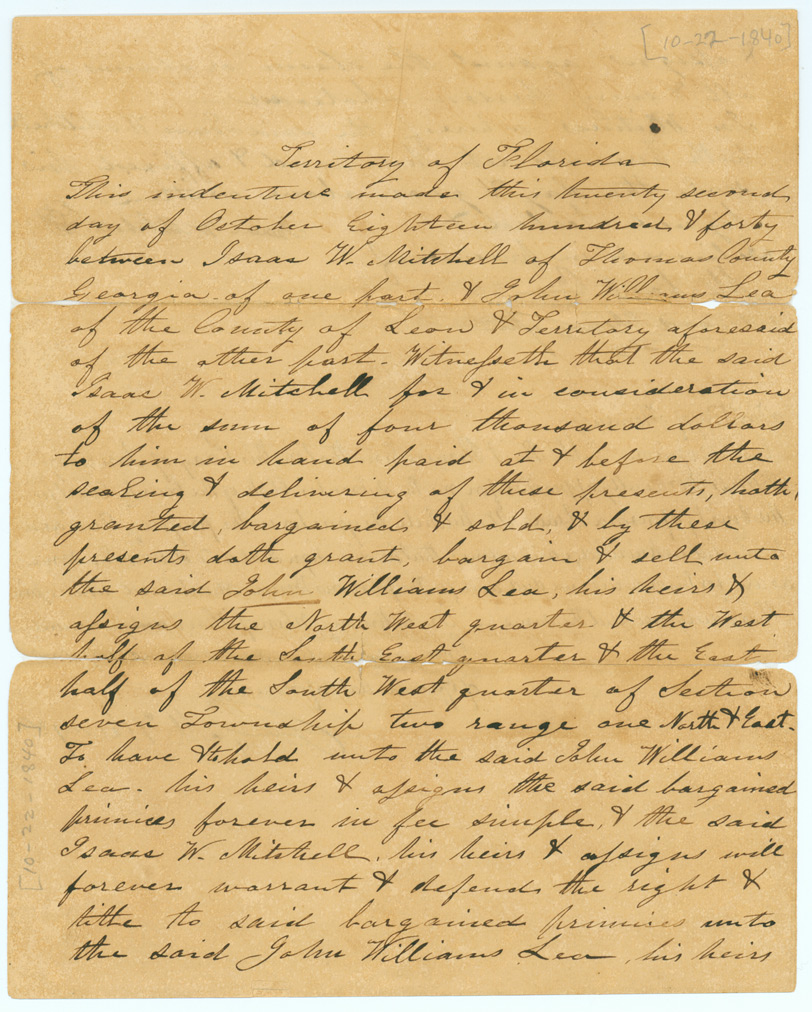 [10-22-1840]
Territory of Florida
This indenture made this twenty second
day of October Eighteen hundred & forty
between Isaac W. Mitchell of Thomas County
Georgia of one part, & John Williams Lea
of the County of Leon & Territory aforesaid
of the other part. Witnesseth that the said
Isaac W. Mitchell for & in consideration
of the sum of four thousand dollars
to him in hand paid at & before the
sealing & delivering of these presents, hath
granted, bargained & sold, & by these
presents doth grant, bargain & sell unto
the said John Williams Lea, his heirs &
assigns the North West quarter & the West
half of the South East quarter & the East
half of the South West quarter of Section
seven Township two range one North & East.
To have & to hold unto the said John Williams
Lea. his heirs & assigns the said bargained
primices forever in fee simple, & the said
Isaac W. Mitchell, his heirs & assigns will
forever warrant & defend the right &
title to said bargained primices unto
the said John Williams Lea, his heirs
[10-22-1840]